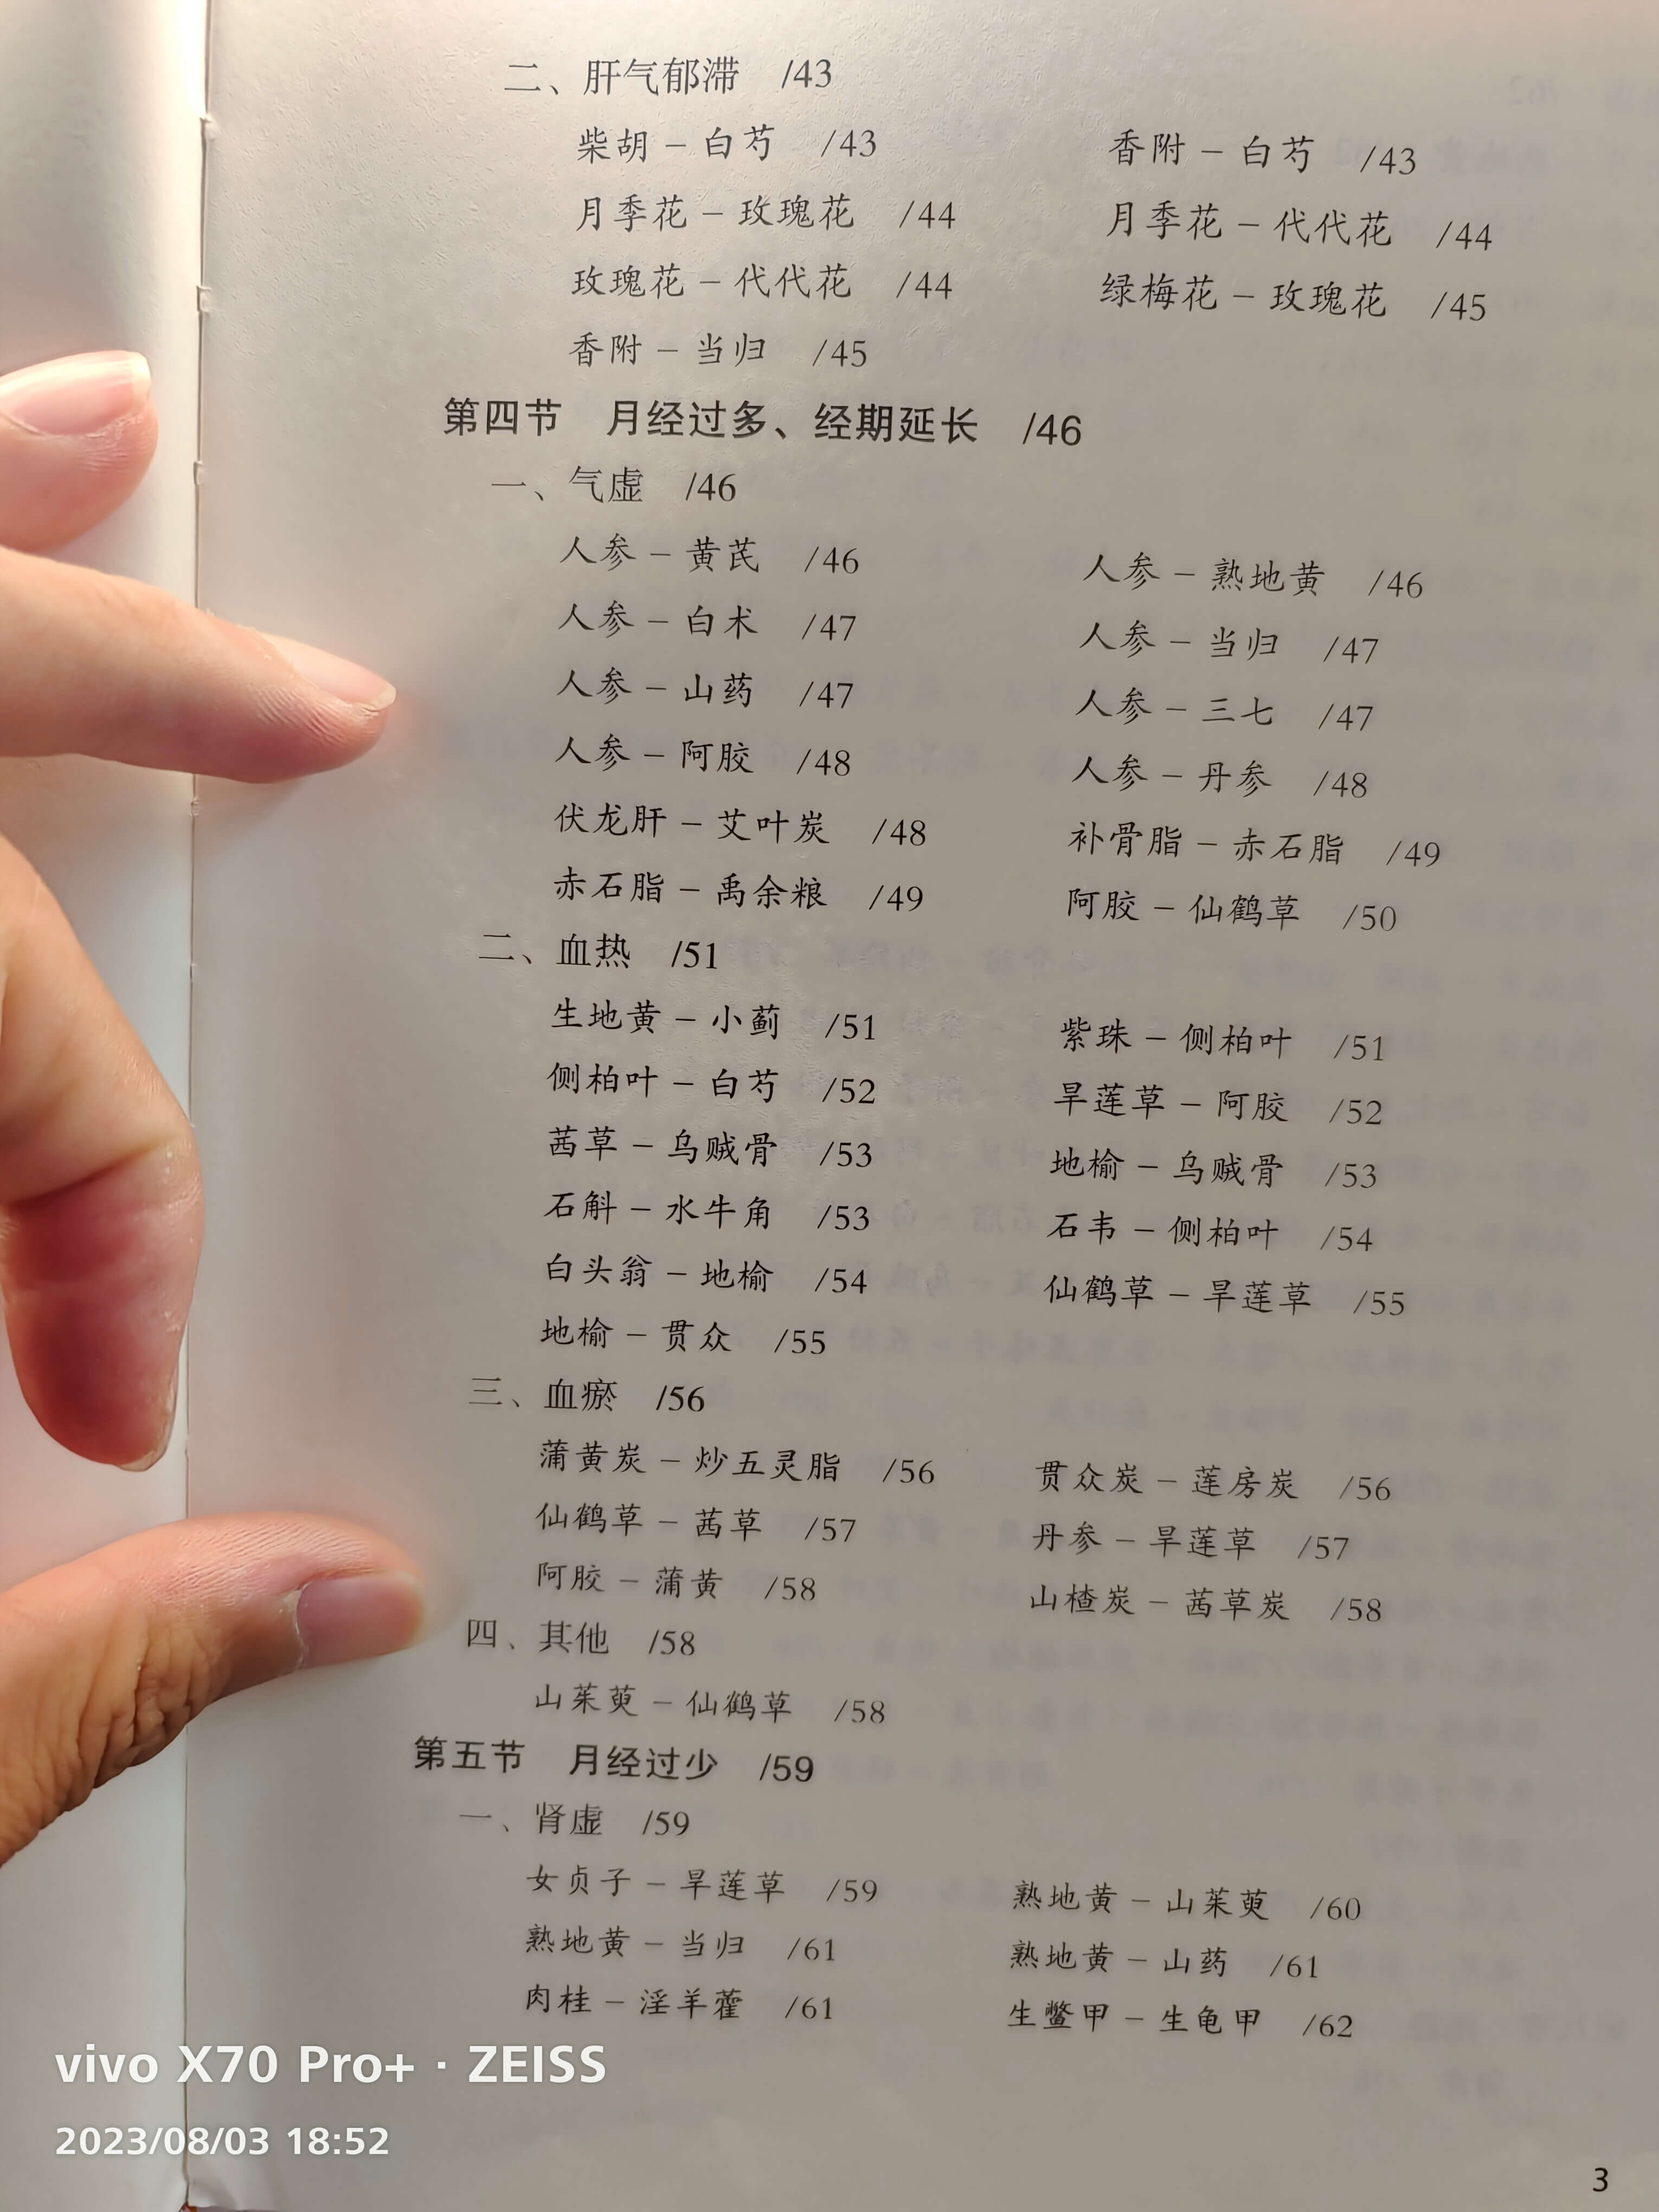 二、肝气郁滞 /43
柴胡－白芍 /43 香附－白芍 /43
月季花－玫瑰花 /44 月季花－代代花 /44
玫瑰花－代代花 /44 绿梅花－玫瑰花 /45
香附－当归 /45
第四节 月经过多、经期延长 /46
一、气虚 /46
人参－黄芪 /46 人参－熟地黄 /46
人参－白术 /47 人参－当归 /47
人参－山药 /47 人参－三七 /47
人参－阿胶 /48 人参－丹参 /48
伏龙肝－艾叶炭 /48 补骨脂－赤石脂 /49
赤石脂－禹余粮 /49 阿胶－仙鹤草 /50
二、血热 /51
生地黄－小蓟 /51 紫珠－侧柏叶 /51
侧柏叶－白芍 /52 旱莲草－阿胶 /52
茜草－乌贼骨 /53 地榆－乌贼骨 /53
石斛－水牛角 /53 石韦－侧柏叶 /54
白头翁－地榆 /54 仙鹤草－旱莲草 /55
地榆－贯众 /55
三、血瘀 /56
蒲黄炭－炒五灵脂 /56 贯众炭－莲房炭 /56
仙鹤草－茜草 /57 丹参－旱莲草 /57
阿胶－蒲黄 /58 山楂炭－茜草炭 /58
四、其他 /58
山茱萸－仙鹤草 /58
第五节 月经过少 /59
一、肾虚 /59
女贞子－旱莲草 /59 熟地黄－山茱萸 /60
熟地黄－当归 /61 熟地黄－山药 /61
肉桂－淫羊藿 /61 生鳖甲－生龟甲 /62
vivo X70 Pro+ · ZEISS
2023/08/03 18:52
3